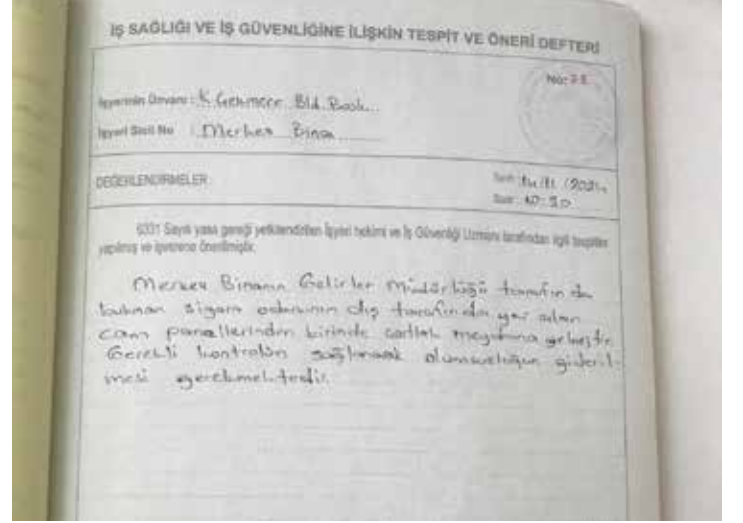 İŞ SAĞLIĞI VE İŞ GÜVENLİĞİNE İLİŞKİN TESPİT VE ÖNERİ DEFTERİ
No:
İşyerinin Ünvanı : K. Bld. Bşk.
İşyeri Sicil No : Merkez Bina
DEĞERLENDİRMELER
Tarih : /11/2021
Saat : 10:30
6331 Sayılı yasa gereği yetkilendirilen İşyeri hekimi ve İş Güvenliği Uzmanı tarafından ilgili tespitler
yapılmış ve işverene önerilmiştir.
Merkez Binanın Gelirler Müdürlüğü tarafın da
bulunan sigara odasının dış tarafında yer alan
cam panellerinden birinde çatlak meydana gelmiştir.
Gerekli kontrolün sağlanarak olumsuzluğun gideril-
mesi gerekmektedir.